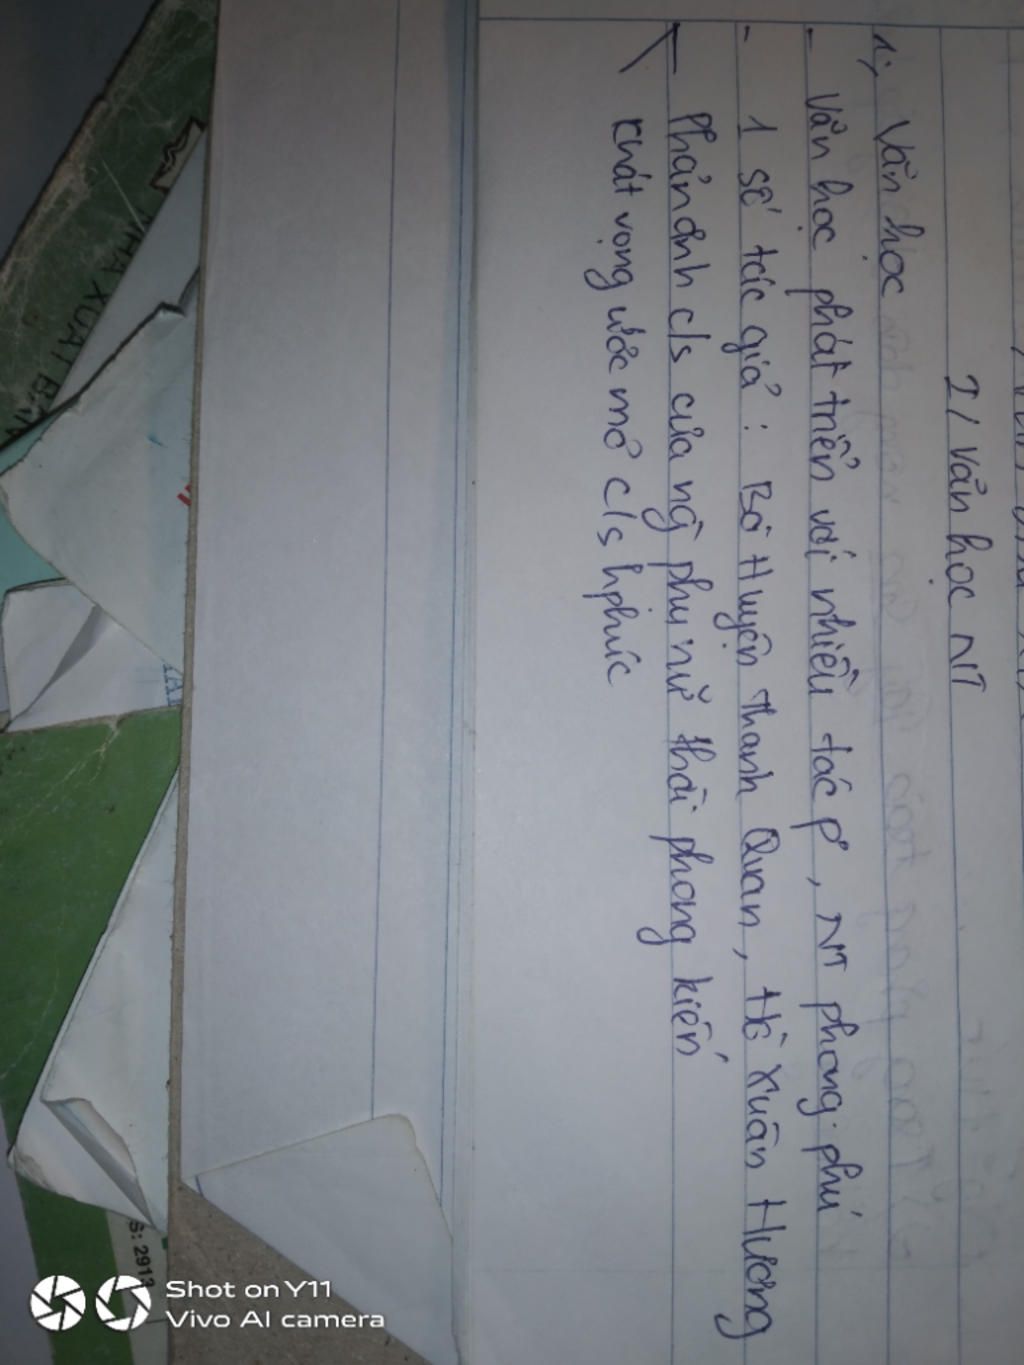 I / Văn học NT
1, Văn học
- Văn học phát triển với nhiều tác p', NT phong phú
- 1 số tác giả : Bà Huyện Thanh Quan, Hồ Xuân Hương
Phản ánh c/s của ng` phụ nữ thời phong kiến
khát vọng ước mơ c/s hphúc
NHÀ XUẤT BẢN
S: 2913
Shot on Y11
Vivo AI camera